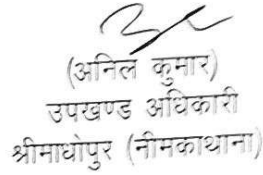 (अनिल कुमार)
उपखण्ड अधिकारी
श्रीमाधोपुर (नीमकाथाना)